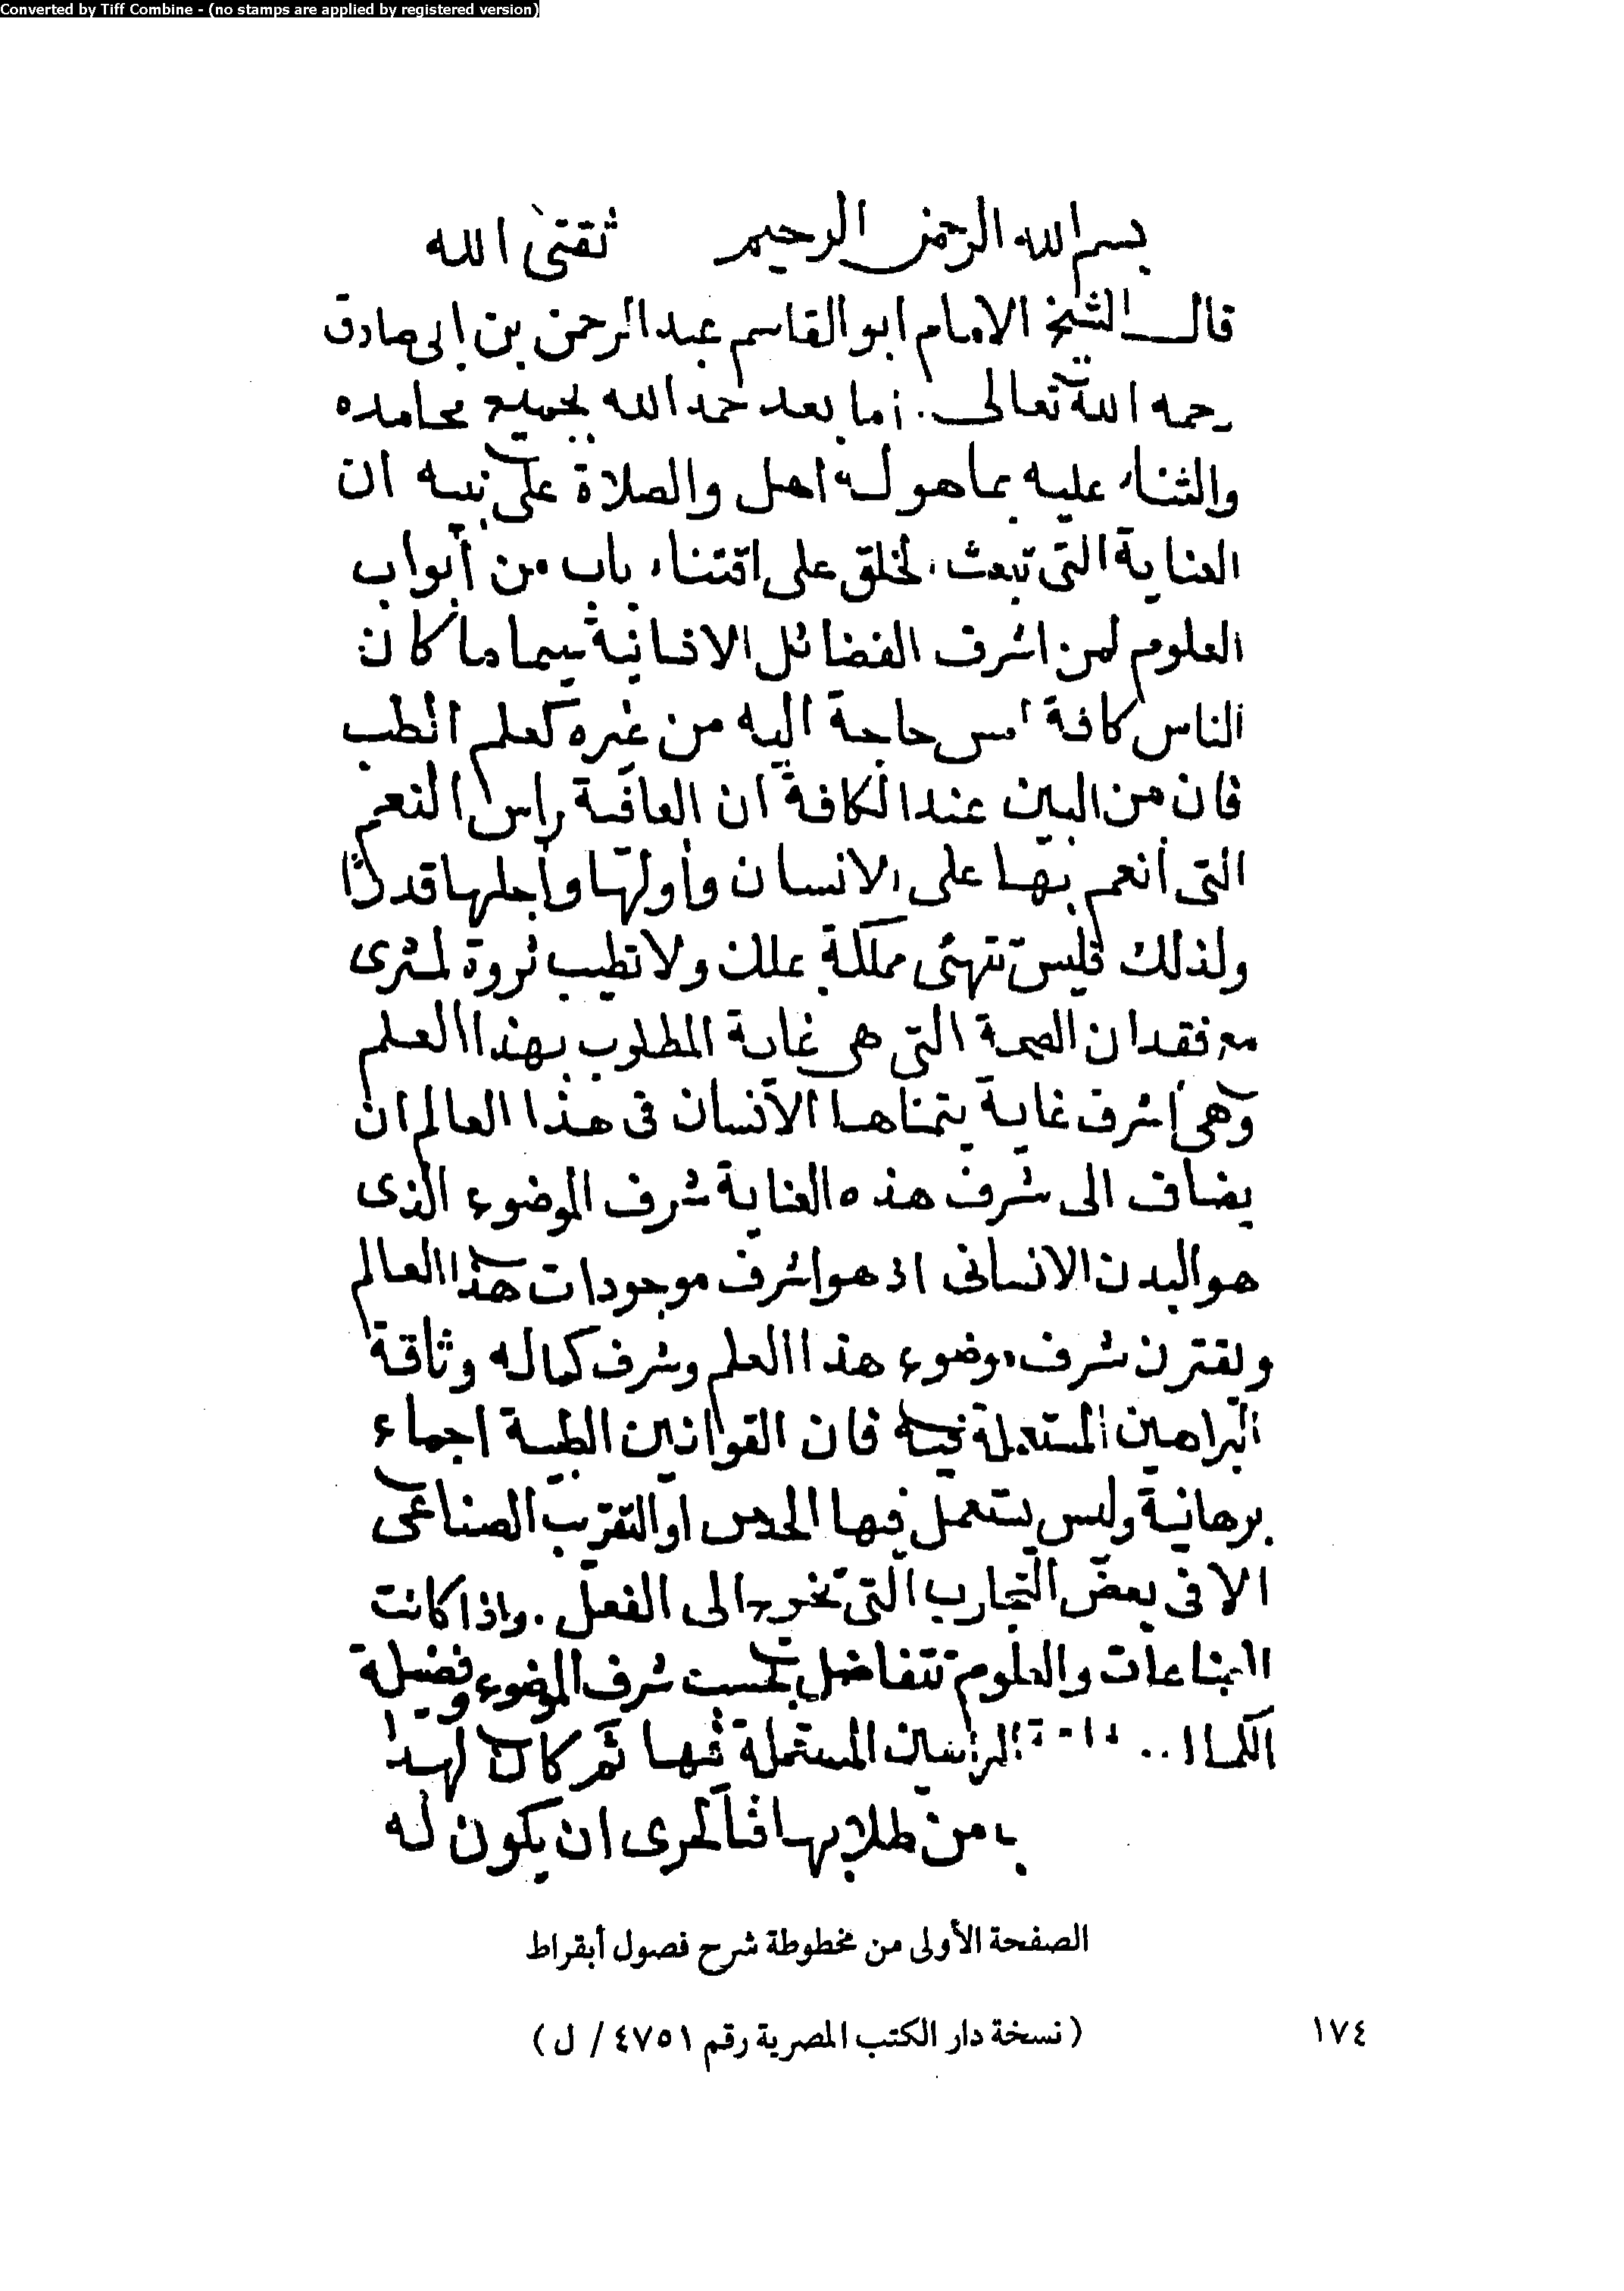 Converted by Tiff Combine - (no stamps are applied by registered version)
بسم الله الرحمن الرحيم ثقتى الله
قال الشيخ الامام ابو القاسم عبد الرحمن بن ابى صادق
رحمه الله تعالى . أما بعد حمد الله بجميع محامده
والثناء عليه بما هو له اهل والصلاة على نبيه ان
العناية التى تبعث الخلق على اقتناء باب من أبواب
العلوم لمن اشرف الفضائل الانسانية سيما ما كان
الناس كافة امس حاجة اليه من غيره كعلم الطب
فان من البين عند الكافة ان العافية رأس النعم
التى أنعم بها على الانسان وأولها وأجلها قدرًا
ولذلك فليس تتهنى مملكة ملك ولا تطيب ثروة لمثرى
مع فقدان الصحة التى هى غاية المطلوب بهذا العلم
وهى أشرف غاية يتمناها الانسان فى هذا العالم ان
يضاف الى شرف هذه العناية شرف الموضوع الذى
هو البدن الانسانى اذ هو اشرف موجودات هذا العالم
ويقترن شرف موضوع هذا العلم وشرف كماله وثاقة
البراهين المستعملة فيه فان القوانين الطبية اجماع
برهانية وليس يستعمل فيها الحدس او التقريب الصناعى
الا فى بعض التجارب التى تخرج الى الفعل . واذا كانت
الصناعات والعلوم تتفاضل بحسب شرف الموضوع وفضيلة
الكمال .. البراهين المستعملة فيها ثم كان لهذا
من طلابها فبالحرى ان يكون له
الصفحة الأولى من مخطوطة شرح فصول أبقراط
( نسخة دار الكتب المصرية رقم ٤٧٥١ / ل )
١٧٤